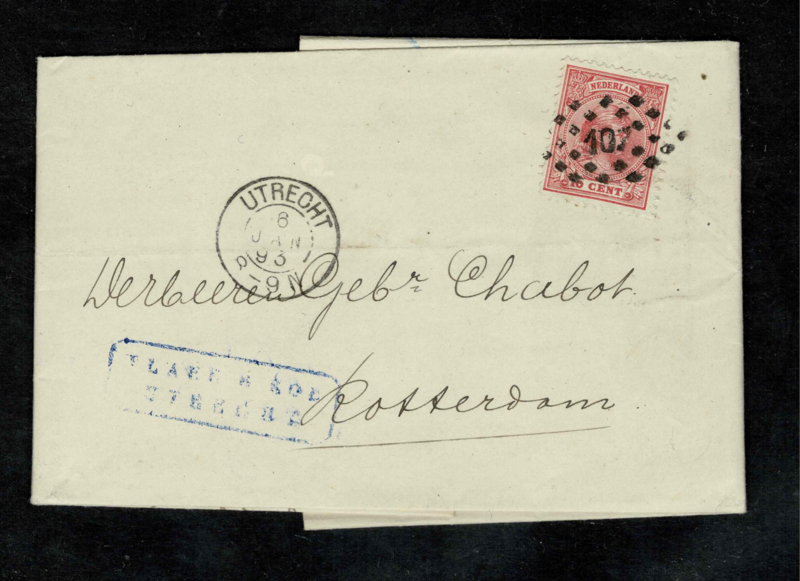 NEDERLAND
107
10 CENT
UTRECHT
6
JAN
93
8-9N
Gebr Chabot.
Rotterdam.
UTRECHT